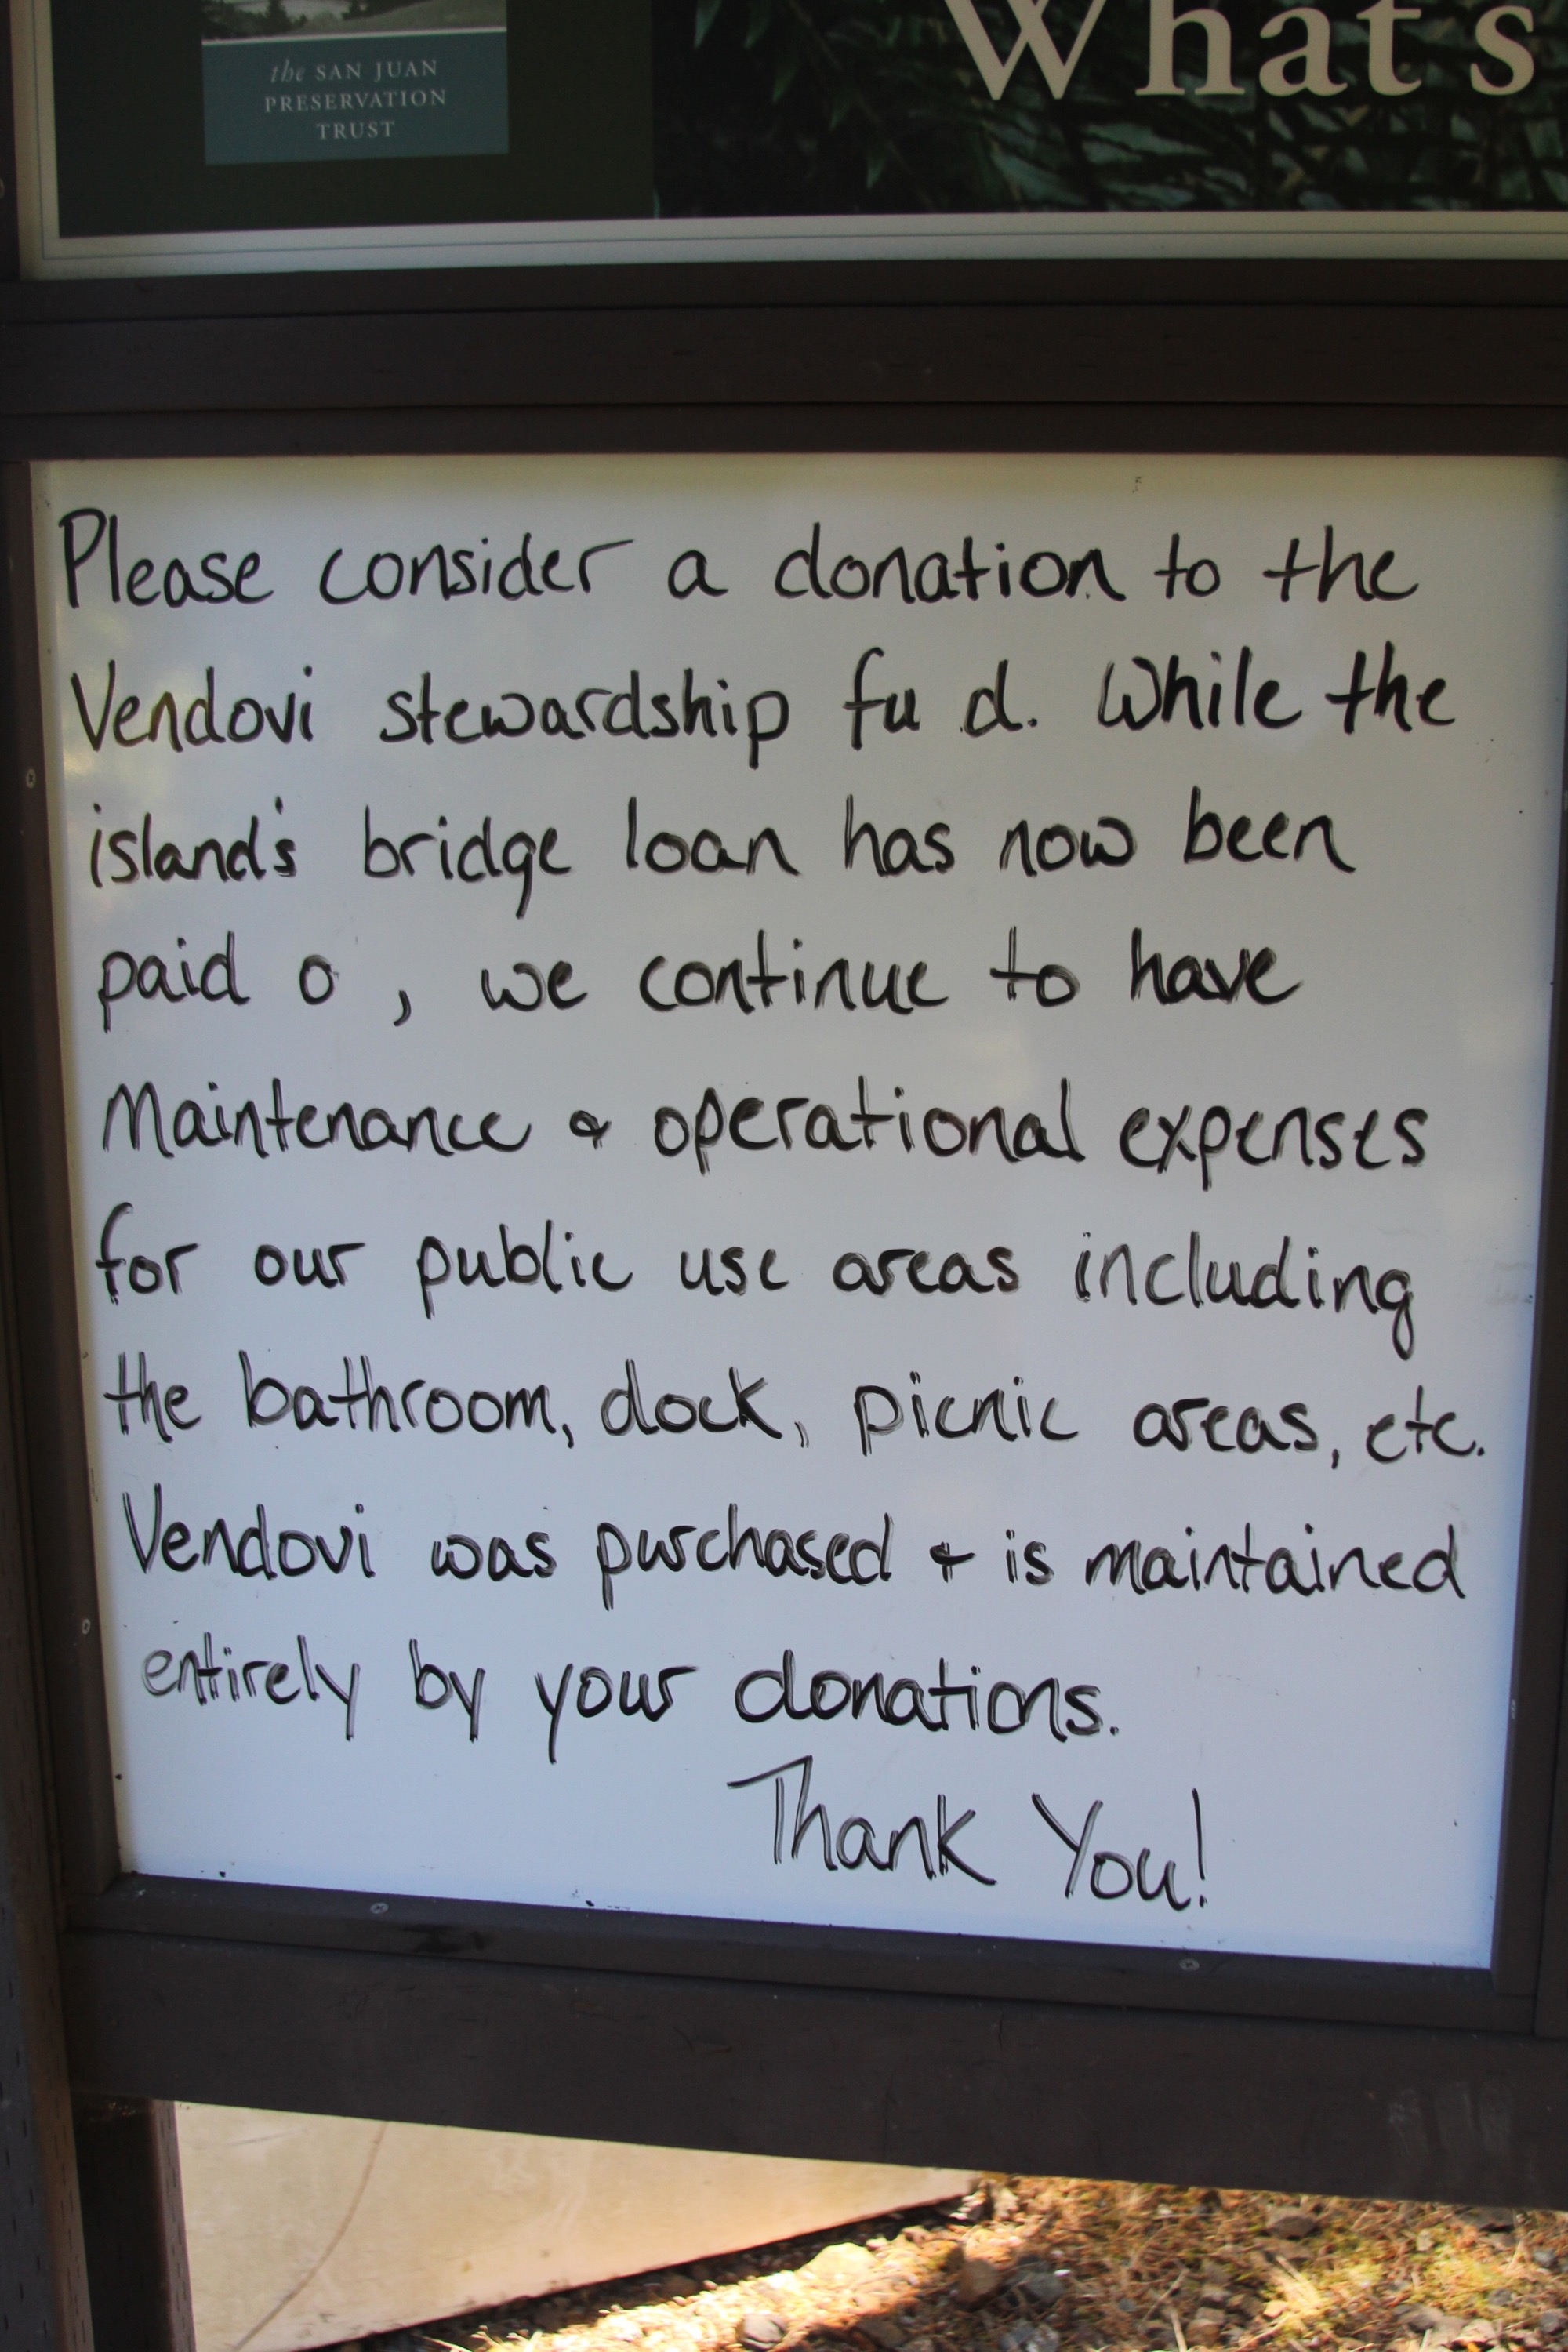 the SAN JUAN
PRESERVATION
TRUST
What's
Please consider a donation to the
Vendovi stewardship fu d. While the
island's bridge loan has now been
paid o , we continue to have
Maintenance & operational expenses
for our public use areas including
the bathroom, dock, picnic areas, etc.
Vendovi was purchased & is maintained
entirely by your donations.
Thank You!